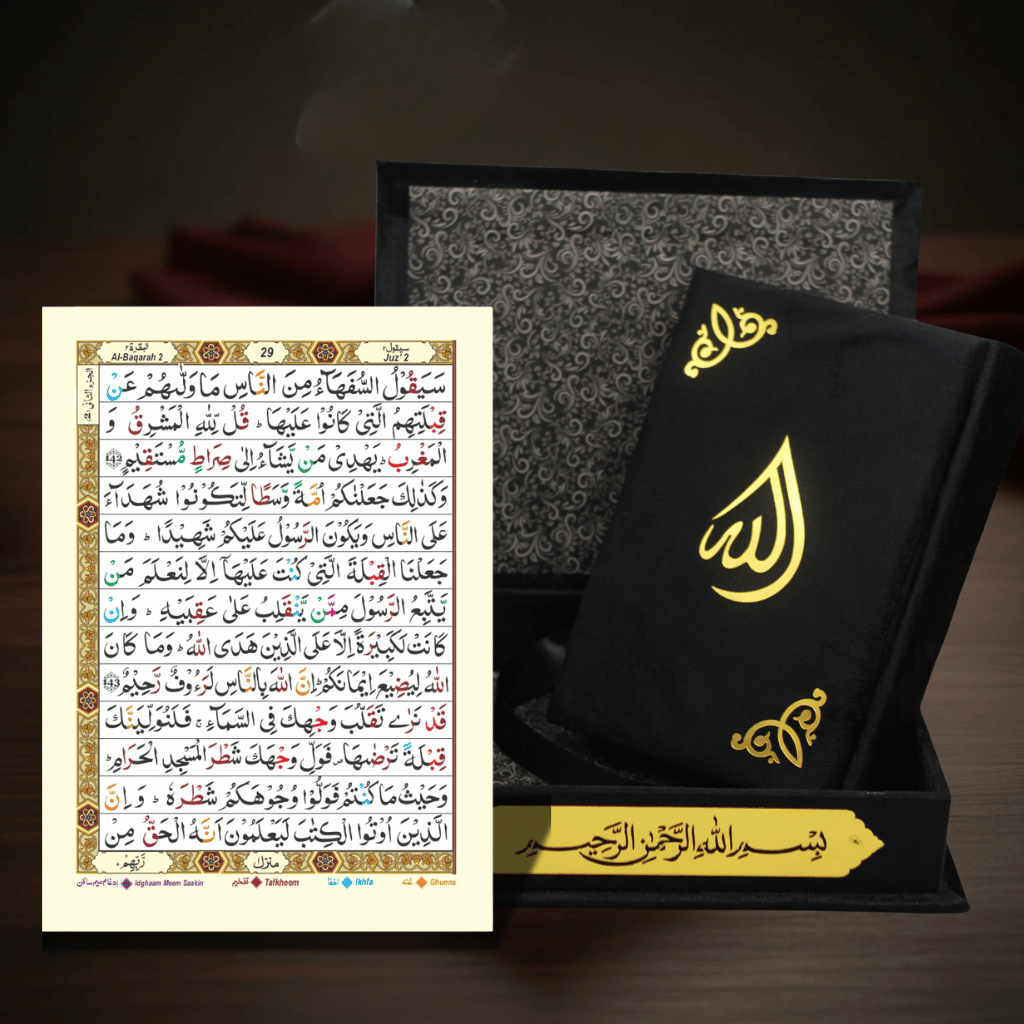 البقرة ٢ سيقول ٢
Al-Baqarah 2 29 Juz' 2
الجزء الثانى 2
سَيَقُوْلُ السُّفَهَآءُ مِنَ النَّاسِ مَا وَلّٰىهُمْ عَنْ
قِبْلَتِهِمُ الَّتِيْ كَانُوْا عَلَيْهَا ؕ قُلْ لِّلّٰهِ الْمَشْرِقُ وَ
الْمَغْرِبُ ؕ يَهْدِيْ مَنْ يَّشَآءُ اِلٰى صِرَاطٍ مُّسْتَقِيْمٍ 142
وَكَذٰلِكَ جَعَلْنٰكُمْ اُمَّةً وَّسَطًا لِّتَكُوْنُوْا شُهَدَآءَ
عَلَى النَّاسِ وَيَكُوْنَ الرَّسُوْلُ عَلَيْكُمْ شَهِيْدًا ؕ وَمَا
جَعَلْنَا الْقِبْلَةَ الَّتِيْ كُنْتَ عَلَيْهَآ اِلَّا لِنَعْلَمَ مَنْ
يَّتَّبِعُ الرَّسُوْلَ مِمَّنْ يَّنْقَلِبُ عَلٰى عَقِبَيْهِ ؕ وَاِنْ
كَانَتْ لَكَبِيْرَةً اِلَّا عَلَى الَّذِيْنَ هَدَى اللّٰهُ ؕ وَمَا كَانَ
اللّٰهُ لِيُضِيْعَ اِيْمَانَكُمْ ؕ اِنَّ اللّٰهَ بِالنَّاسِ لَرَءُوْفٌ رَّحِيْمٌ 143
قَدْ نَرٰى تَقَلُّبَ وَجْهِكَ فِي السَّمَآءِ ۚ فَلَنُوَلِّيَنَّكَ
قِبْلَةً تَرْضٰىهَا ۪ فَوَلِّ وَجْهَكَ شَطْرَ الْمَسْجِدِ الْحَرَامِ ؕ
وَحَيْثُ مَا كُنْتُمْ فَوَلُّوْا وُجُوْهَكُمْ شَطْرَهٗ ؕ وَاِنَّ
الَّذِيْنَ اُوْتُوا الْكِتٰبَ لَيَعْلَمُوْنَ اَنَّهُ الْحَقُّ مِنْ
رَّبِّهِمْ ؕ منزل
ادغام میم ساکن Idghaam Meem Saakin تفخیم Tafkheem اخفا Ikhfa غنہ Ghunna
الله
بِسْمِ اللّٰهِ الرَّحْمٰنِ الرَّحِيْمِ